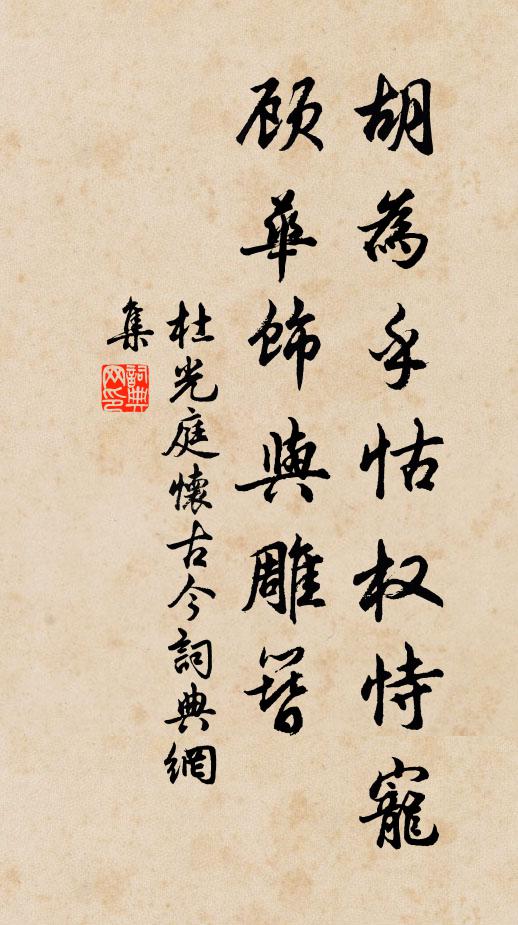 胡為乎怙权恃寵
顾華飾與雕簪
杜光庭懷古今詞典網
集
詞典
网印